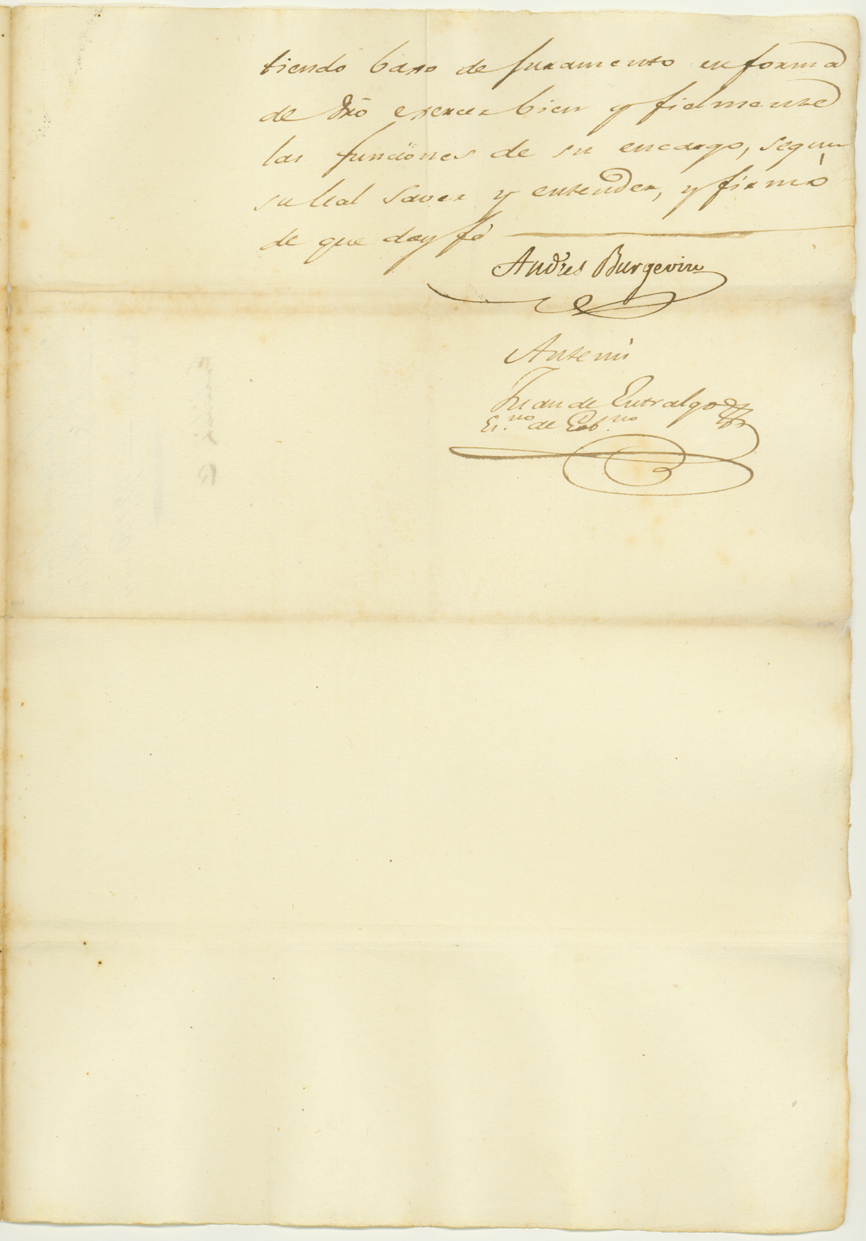 tiendo baxo de Juramento en forma
de dro exercer bien y fielmente
las funciones de su encargo, segun
su leal saver y entender, y firmó
de que doy fé
Andres Burgevin
Antemi
Juan de Entralgo
Es.no de Gob.no